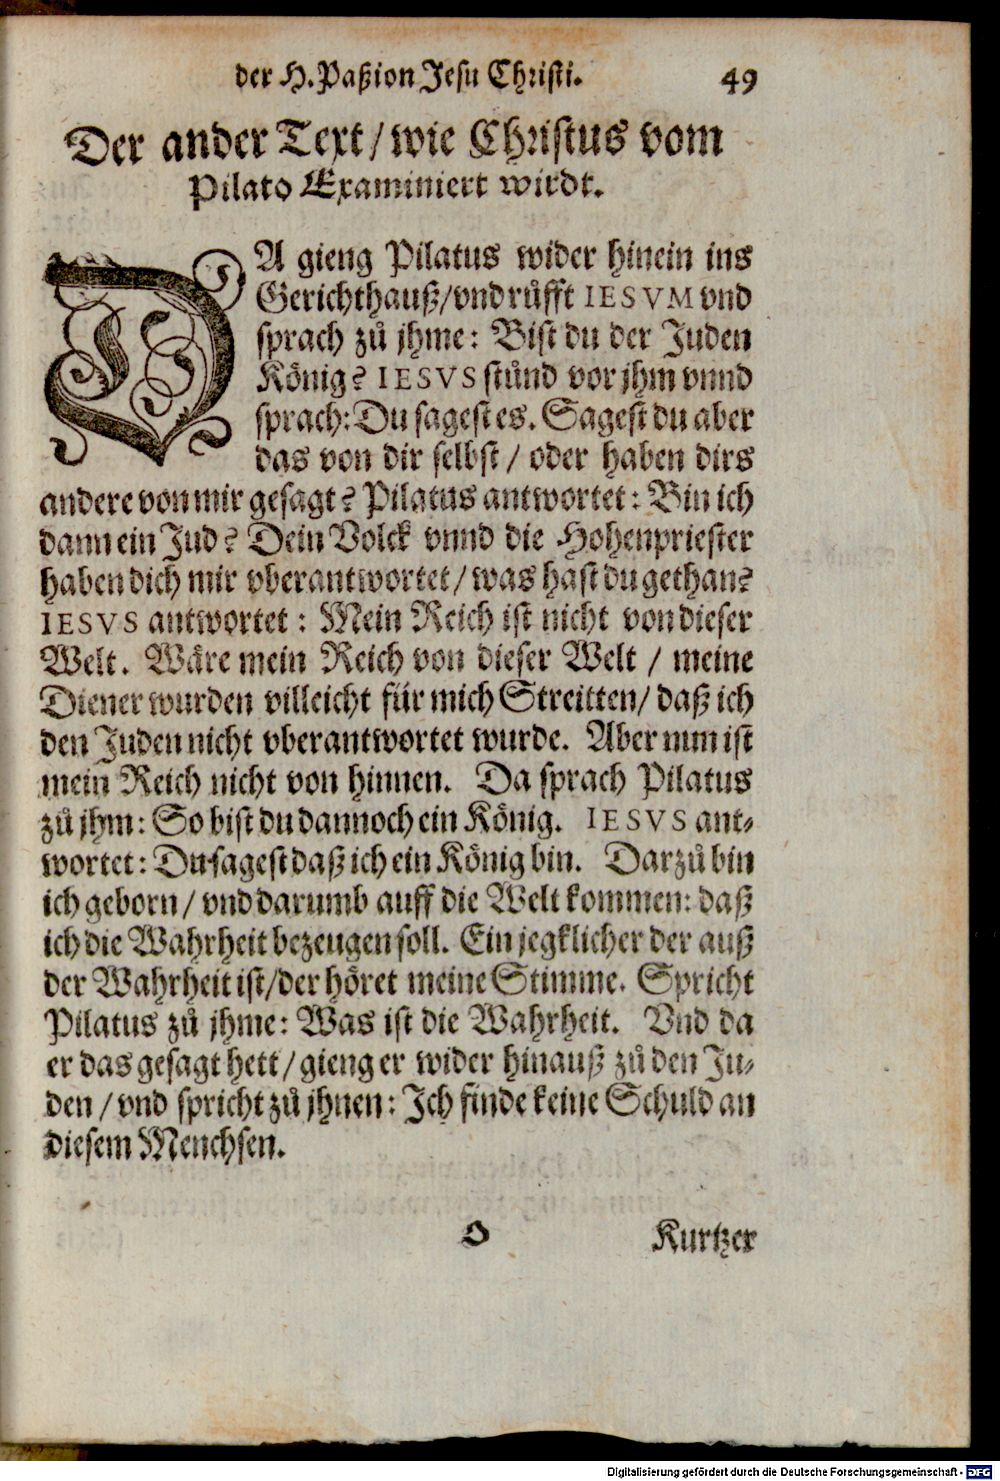 der H. Paßion Jesu Christi. 49
Der ander Text / wie Christus vom
Pilato Examiniert wirdt.
DA gieng Pilatus wider hinein ins
Gerichthauß / vnd růfft IESVM vnd
sprach zů jhme: Bist du der Juden
König? IESVS stůnd vor jhm vnnd
sprach: Du sagest es. Sagest du aber
das von dir selbst / oder haben dirs
andere von mir gesagt? Pilatus antwortet: Bin ich
dann ein Jud? Dein Volck vnnd die Hohenpriester
haben dich mir vberantwortet / was hast du gethan?
IESVS antwortet: Mein Reich ist nicht von dieser
Welt. Wäre mein Reich von dieser Welt / meine
Diener wurden villeicht für mich Streitten / daß ich
den Juden nicht vberantwortet wurde. Aber nun ist
mein Reich nicht von hinnen. Da sprach Pilatus
zů jhm: So bist du dannoch ein König. IESVS ant-
wortet: Du sagest daß ich ein König bin. Darzů bin
ich geborn / vnd darumb auff die Welt kommen: daß
ich die Wahrheit bezeugen soll. Ein jegklicher der auß
der Wahrheit ist / der höret meine Stimme. Spricht
Pilatus zů jhme: Was ist die Wahrheit. Vnd da
er das gesagt hett / gieng er wider hinauß zů den Ju-
den / vnd spricht zů jhnen: Ich finde keine Schuld an
diesem Menchsen.
Kurtzer
Digitalisierung gefördert durch die Deutsche Forschungsgemeinschaft - DFG